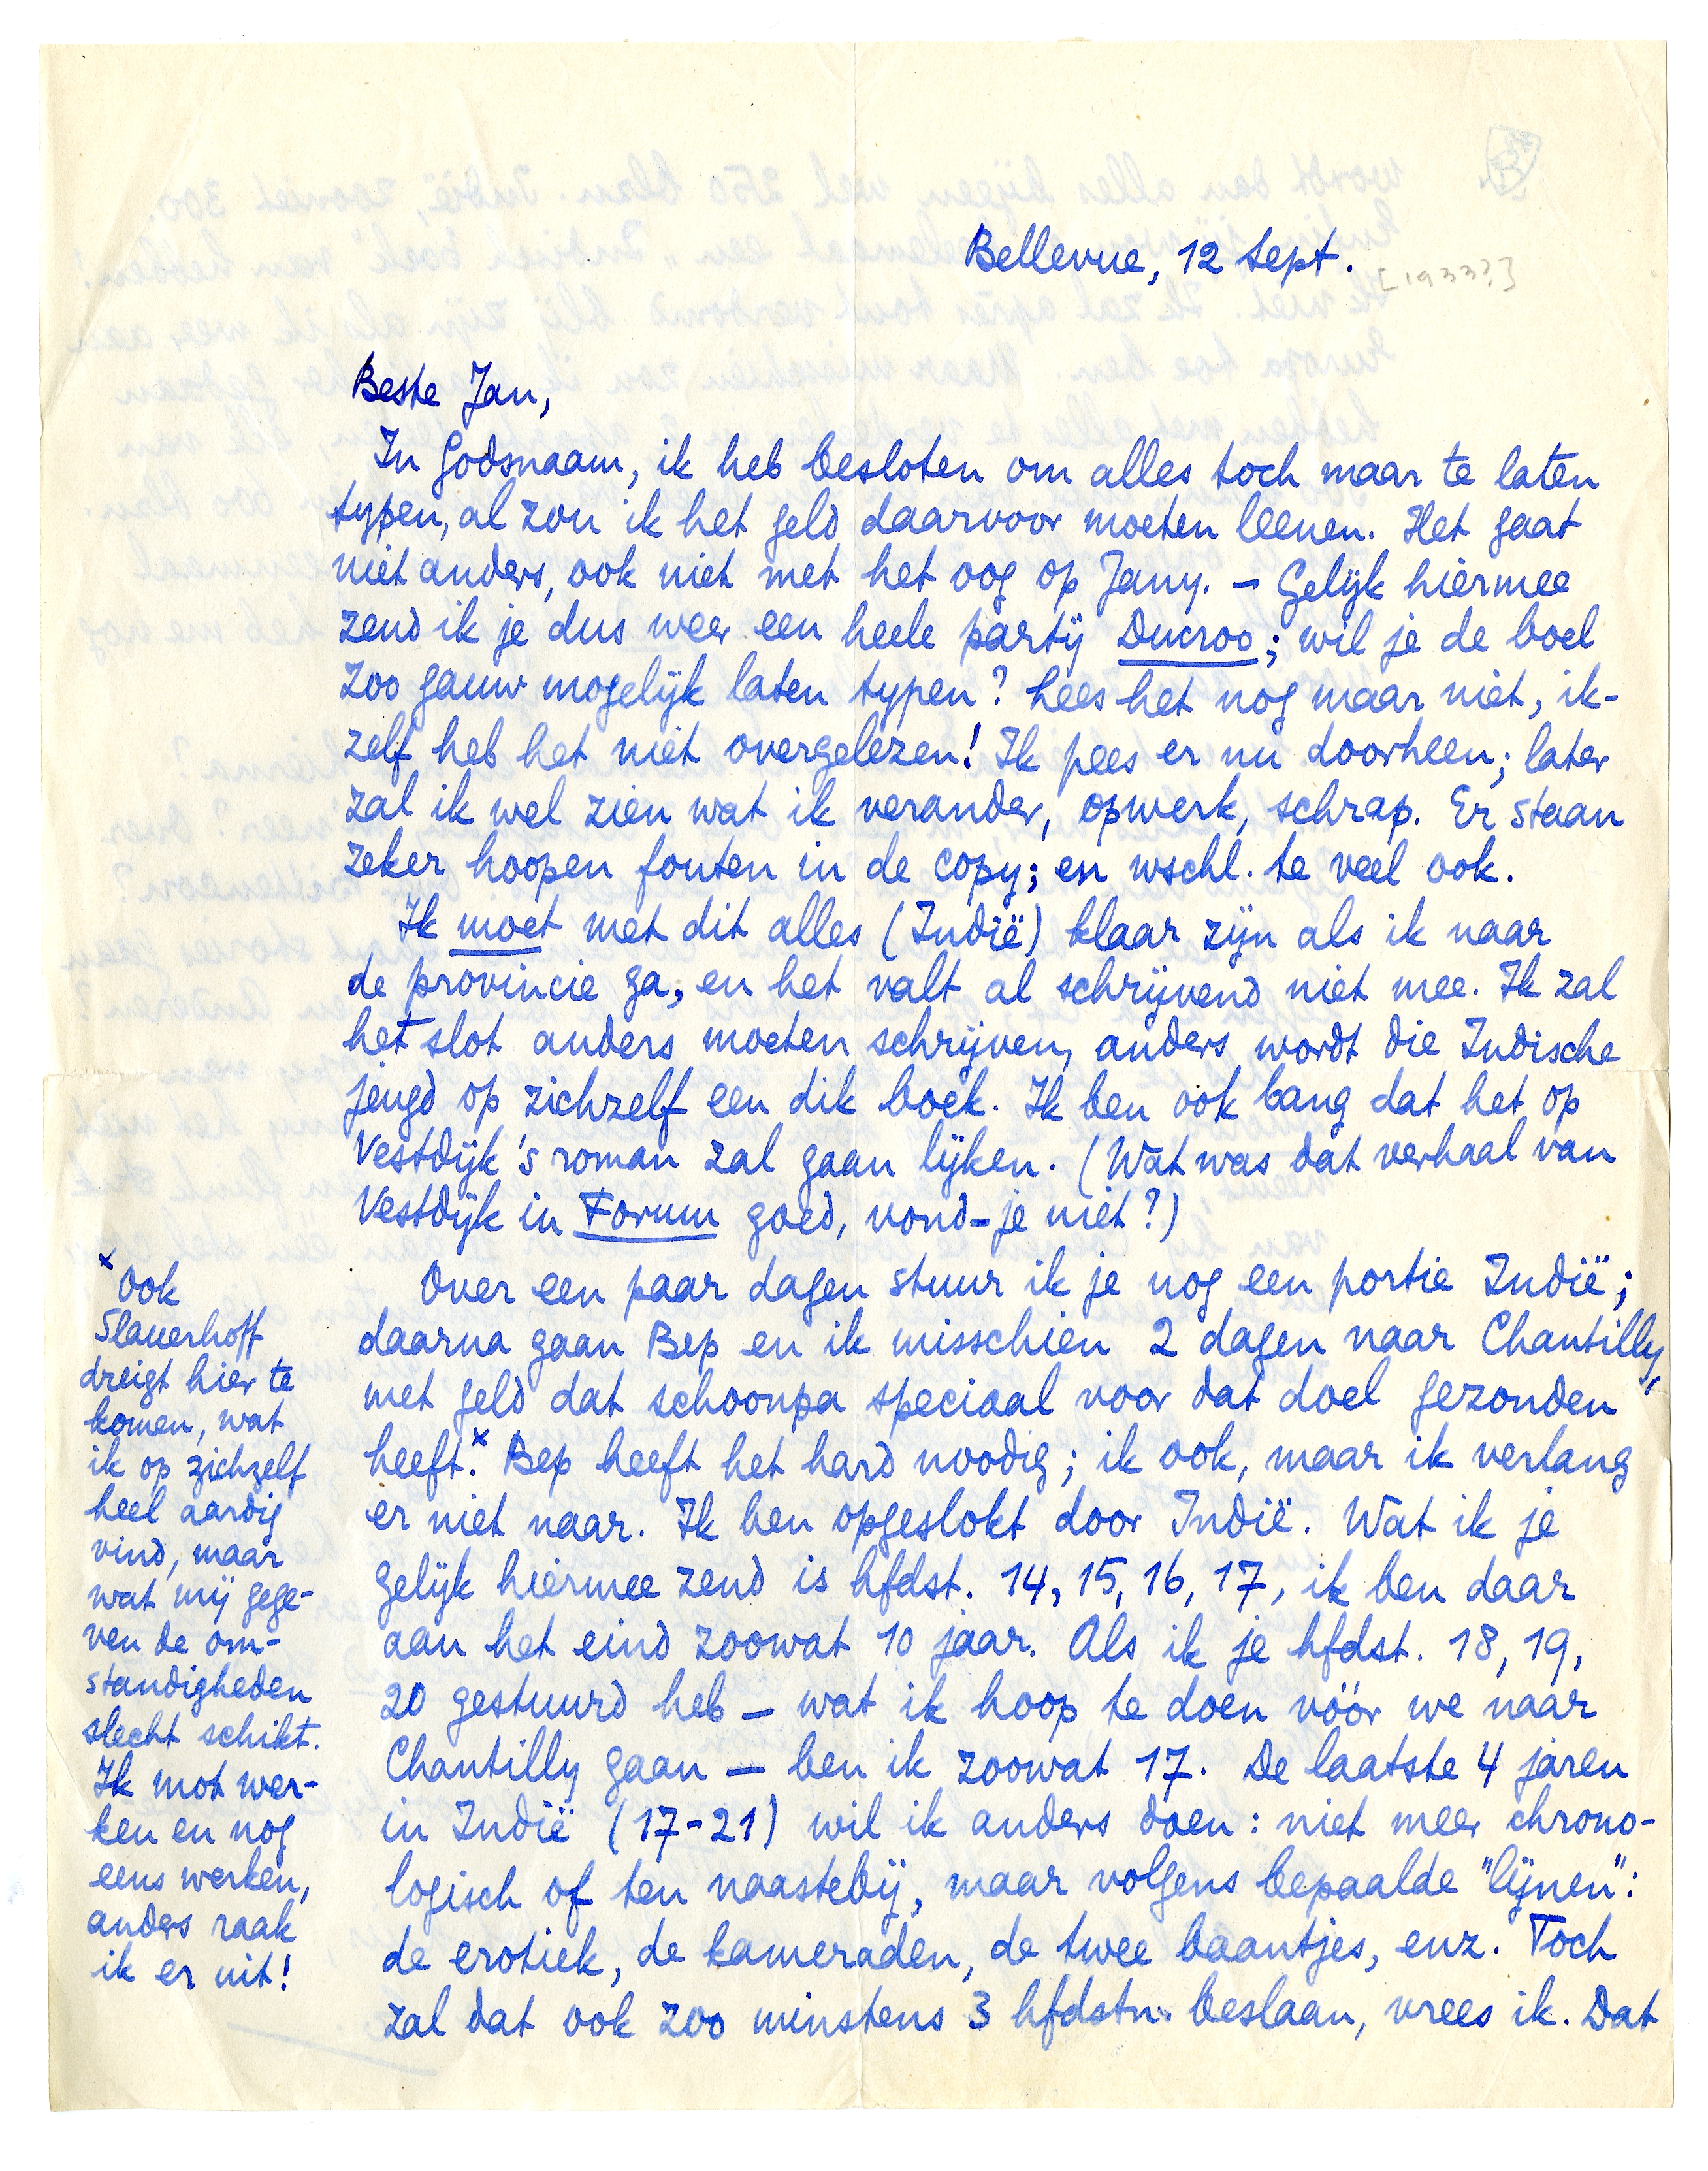 Bellevue, 12 Sept.
[1933?]
Beste Jan,
In Godsnaam, ik heb besloten om alles toch maar te laten
typen, al zou ik het geld daarvoor moeten leenen. Het gaat
niet anders, ook niet met het oog op Jany. – Gelijk hiermee
zend ik je dus weer een heele partij Ducroo; wil je de boel
zoo gauw mogelijk laten typen? Lees het nog maar niet, ik-
zelf heb het niet overgelezen! Ik pees er nu doorheen; later
zal ik wel zien wat ik verander, opwerk, schrap. Er staan
zeker hoopen fouten in de copy; en wschl. te veel ook.
Ik moet met dit alles (Indië) klaar zijn als ik naar
de provincie ga, en het valt al schrijvend niet mee. Ik zal
het slot anders moeten schrijven, anders wordt die Indische
jeugd op zichzelf een dik boek. Ik ben ook bang dat het op
Vestdijk's roman zal gaan lijken. (Wat was dat verhaal van
Vestdijk in Forum goed, vond-je niet?)
Over een paar dagen stuur ik je nog een portie Indië;
daarna gaan Bep en ik misschien 2 dagen naar Chantilly,
met geld dat schoonpa speciaal voor dat doel gezonden
heeft.x Bep heeft het hard noodig; ik ook, maar ik verlang
er niet naar. Ik ben opgeslokt door Indië. Wat ik je
gelijk hiermee zend is hfdst. 14, 15, 16, 17, ik ben daar
aan het eind zoowat 10 jaar. Als ik je hfdst. 18, 19,
20 gestuurd heb – wat ik hoop te doen vóór we naar
Chantilly gaan – ben ik zoowat 17. De laatste 4 jaren
in Indië (17-21) wil ik anders doen: niet meer chrono-
logisch of ten naastebij, maar volgens bepaalde "lijnen":
de erotiek, de kameraden, de twee baantjes, enz. Toch
zal dat ook zoo minstens 3 hfdstn. beslaan, vrees ik. Dat
x Ook
Slauerhoff
dreigt hier te
komen, wat
ik op zichzelf
heel aardig
vind, maar
wat mij gege-
ven de om-
standigheden
slecht schikt.
Ik mot wer-
ken en nog
eens werken,
anders raak
ik er uit!